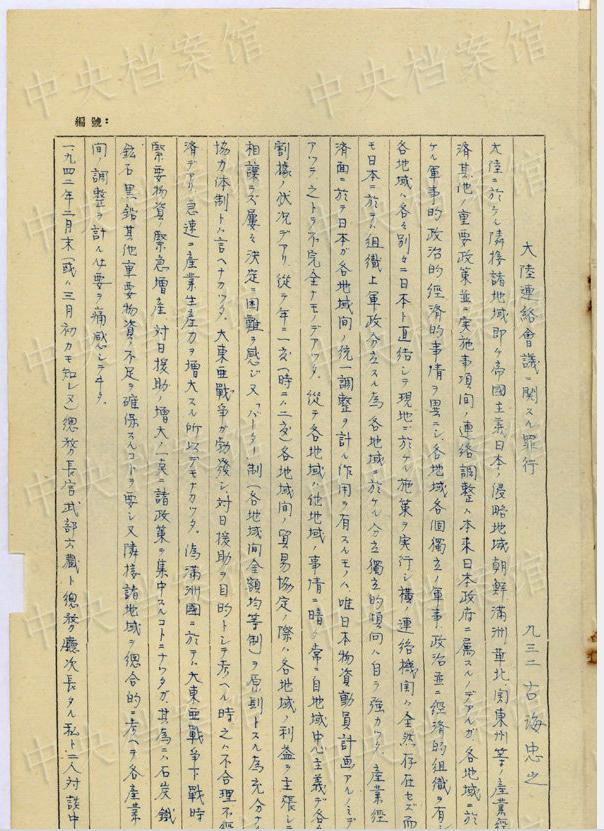 中央档案馆
編號:
大陸連絡會議ニ関スル罪行
九三二 古海忠之
大陸ニ於ケル隣接諸地域即チ帝國主義日本ノ侵略地域朝鮮満洲華北関東州等ノ産業經
済其他ノ重要政策並ニ実施事項間ノ連絡調整ハ本来日本政府ニ属スルノデアルガ各地域ニ於
ケル軍事的政治的經済的事情ヲ異ニシ各地域各個獨立ノ軍事、政治並ニ經済的組織ヲ有シ
各地域ハ各々別々ニ日本ト直結シテ現地ニ於ケル施策ヲ実行シ横ノ連絡機関ハ全然存在セズ而
モ日本ニ於テハ組織上軍政分立スル為各地域ニ於ケル分立獨立的傾向ハ自ラ強カッタ。産業經
済面ニ於テ日本ガ各地域間ノ統一調整ヲ計ル作用ヲ有スルモノハ唯日本物資動員計画アルノミデ
アッテ之トテ不完全ナモノデアッタ。従テ各地域ハ他地域ノ事情ニ暗ク常ニ自地域中心主義デ各々
割據ノ状況デアリ従テ年ニ一交(時ニハ二交)各地域間ノ貿易協定ノ際ハ各地域ノ利益ヲ主張シテ
相譲ラズ屡々決定ニ困難ヲ感ジ又「バーター」制(各地域間金額均等制)ヲ原則トスル為充分ナ
協力体制トハ言ヘナカッタ。大東亜戰爭ガ勃発シ対日援助ヲ目的トシテ考ヘル時之ハ不合理不經
済デアリ急速ニ産業生産力ヲ増大スル所以デモナカッタ。偽満洲國ニ於テハ大東亜戰爭下戰時
緊要物資ノ緊急増産、対日援助ノ増大ノ一点ニ諸政策ヲ集中スルコトニナッタガ其為ニハ石炭鐵
鉱石黒鉛其他重要物資ノ不足ヲ確保スルコトヲ要シ又隣接諸地域ヲ總合的ニ考ヘテ各産業
間ノ調整ヲ計ル必要ヲ痛感シテヰタ。
一九四二年二月末(或ハ三月初カモ知レヌ)總務長官武部六藏ト總務廳次長タル私ト二人対談中